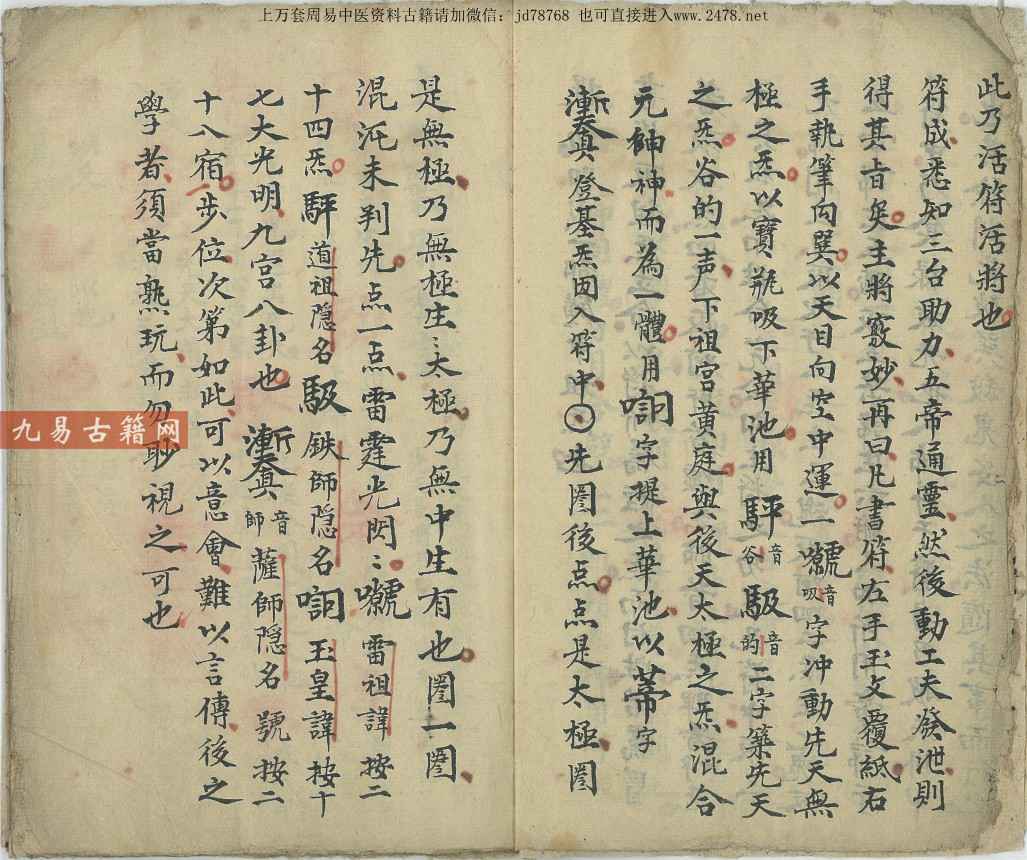 上万套周易中医资料古籍请加微信：jd78768 也可直接进入www.2478.net
此乃活符活將也
符成悉知三台助力五帝通靈然後動工夫發泄則
得其旨矣主將竅妙再曰凡書符左手玉文覆紙右
手執筆向巽以天目向空中運一音吸字冲動先天無
極之炁以寶瓶吸下華池用㔻音谷音的二字築先天
之炁谷的一声下祖宮黄庭與後天太極之炁混合
元神神而為一體用字提上華池以字
登基炁因入符中〇先圈後点点是太極圈
是無極乃無極生〻太極乃無中生有也圈一圈
混沌未判先点一点雷霆光閃〻雷祖諱按二
十四炁道祖隐名鉄師隐名玉皇諱按十
七大光明九宫八卦也音師薩師隐名號按二
十八宿步位次第如此可以意會難以言傳後之
學者須當熟玩而勿耿視之可也
九易古籍网